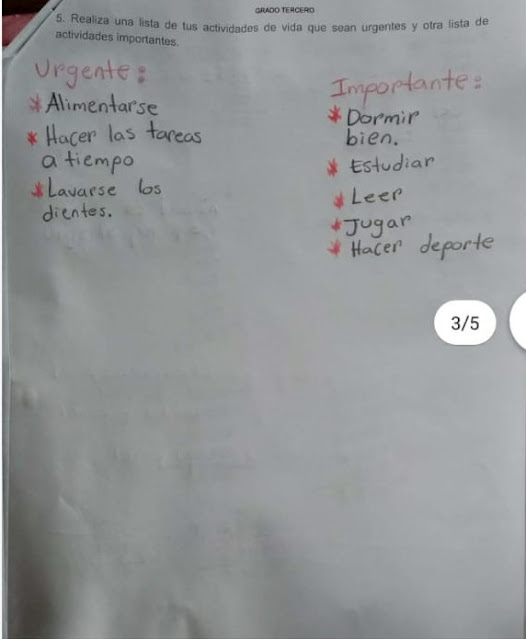 GRADO TERCERO
5. Realiza una lista de tus actividades de vida que sean urgentes y otra lista de
actividades importantes.
Urgente:
* Alimentarse
* Hacer las tareas
a tiempo
* Lavarse los
dientes.
Importante:
* Dormir
bien.
* Estudiar
* Leer
* Jugar
* Hacer deporte
3/5